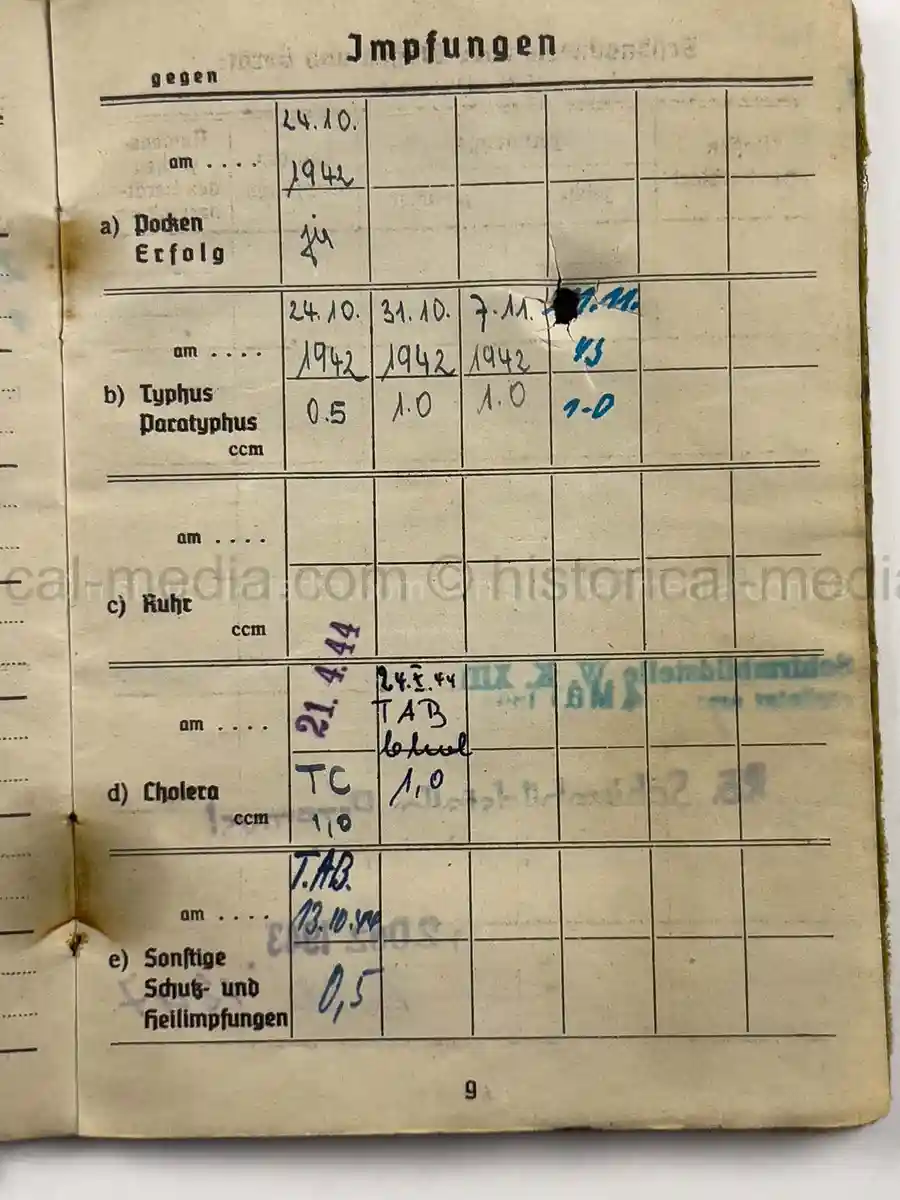 Impfungen
gegen
am . . . .
24.10.
1942
a) Pocken
Erfolg
ja
am . . . .
24.10. 31.10. 7.11. 11.
1942 1942 1942 43
b) Typhus
Paratyphus
ccm
0.5 1.0 1.0 1-0
am . . . .
c) Ruhr
ccm
cal-media.com © historical-media
am . . . .
21.4.44 24.X.44
TAB
d) Cholera
ccm
TC 1,0
1,0
T.AB.
am . . . .
13.10.44
e) Sonstige
Schutz- und
Heilimpfungen
0,5
9